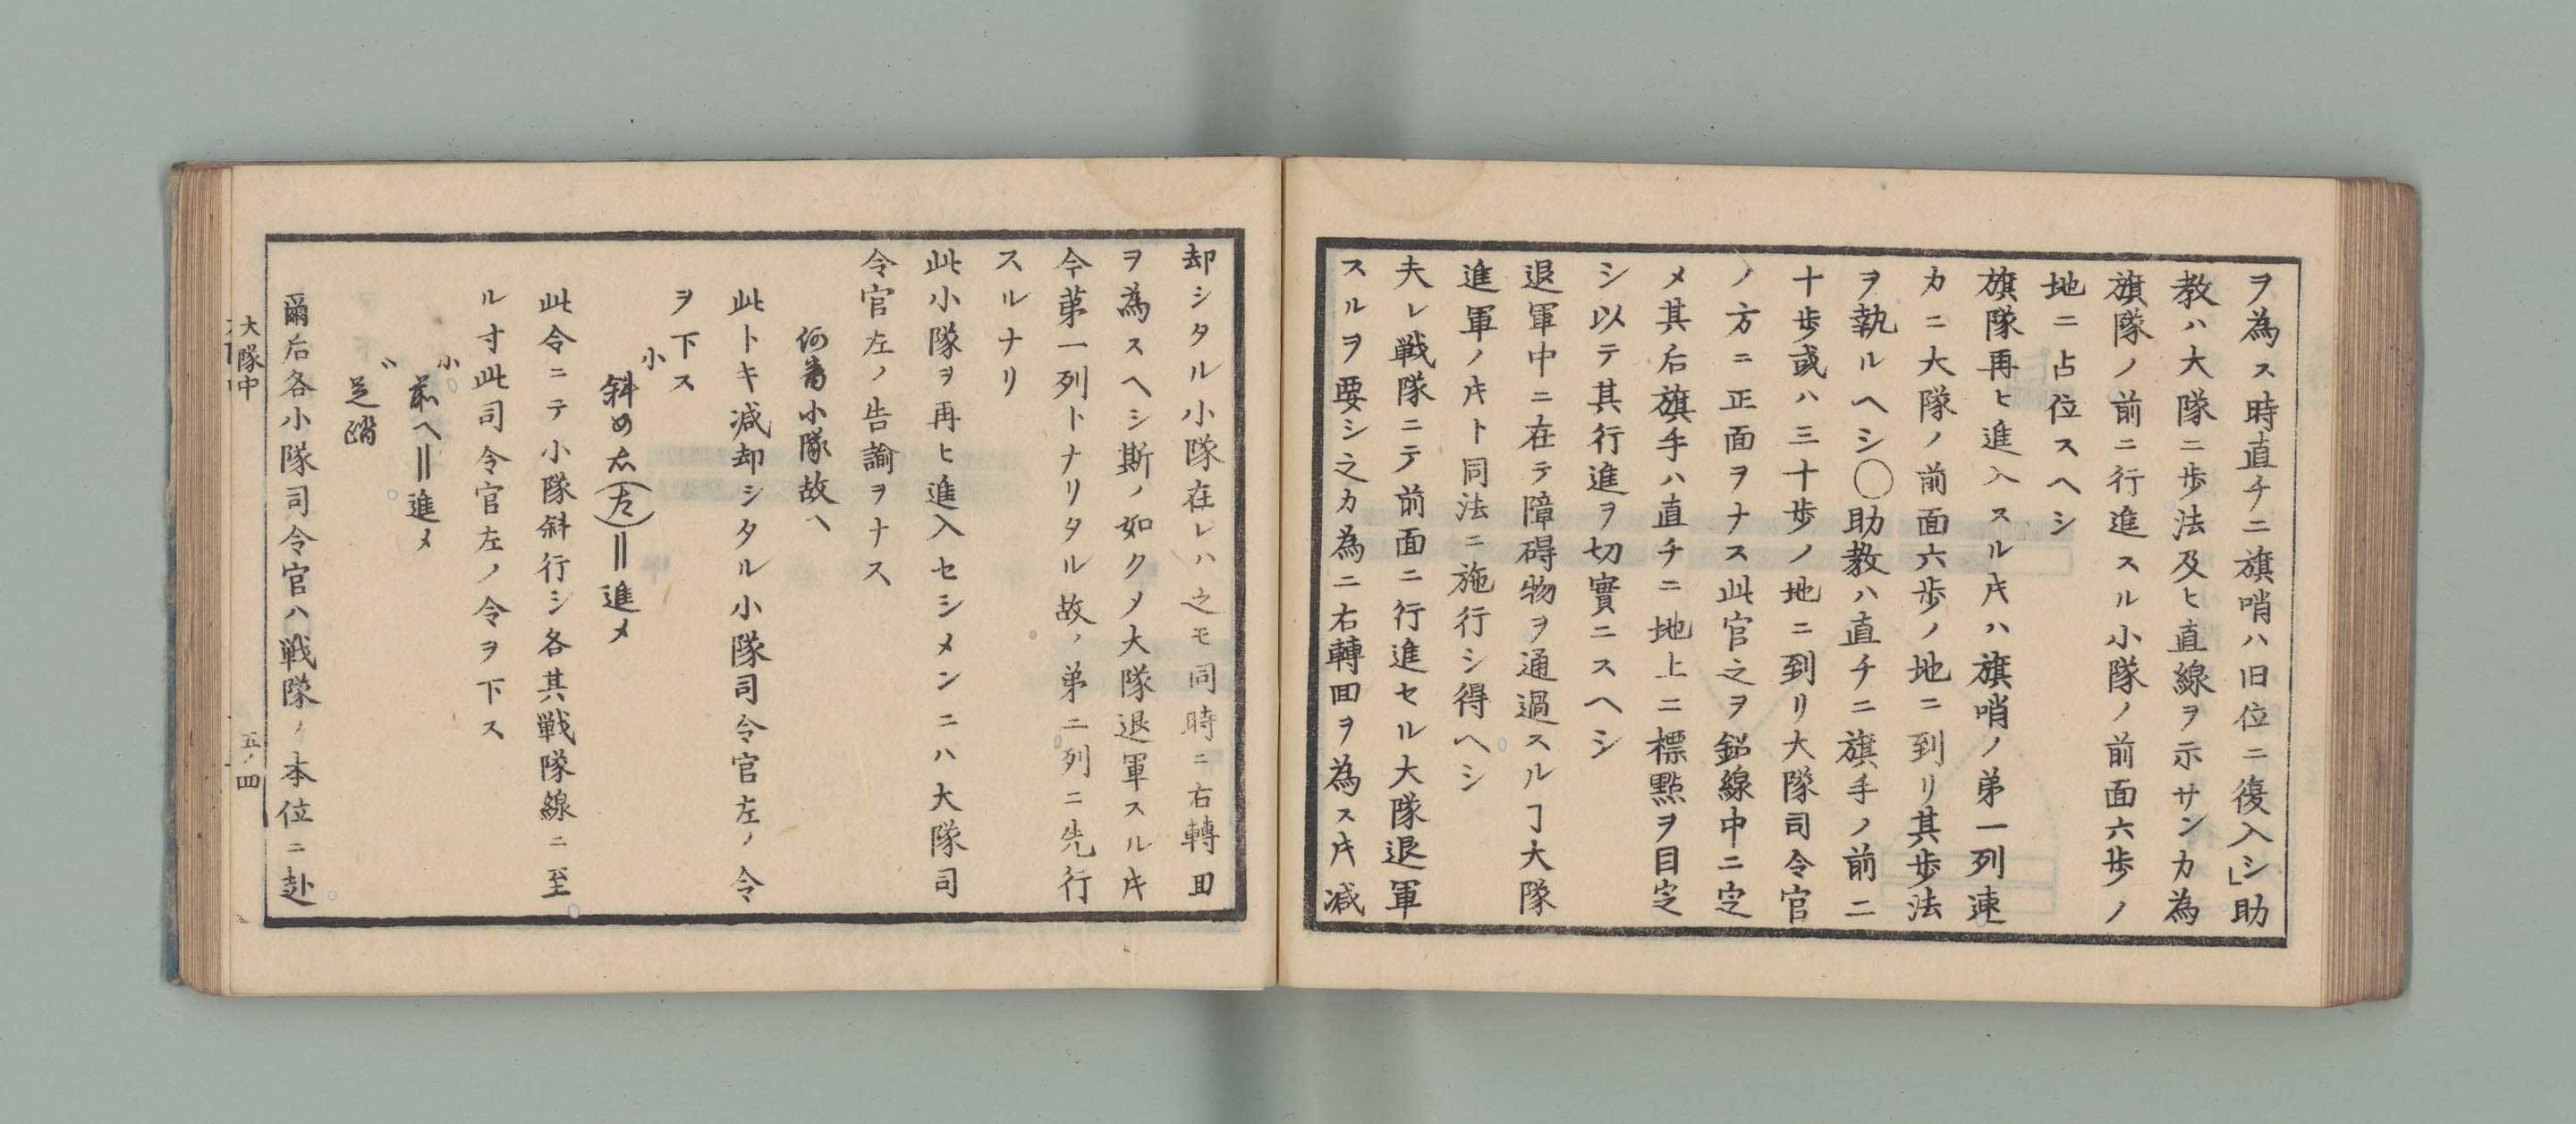 ヲ為ス時直チニ旗哨ハ旧位ニ復入シ」助
教ハ大隊ニ歩法及ヒ直線ヲ示サンカ為
旗隊ノ前ニ行進スル小隊ノ前面六歩ノ
地ニ占位スヘシ
旗隊再ヒ進入スル𪜈ハ旗哨ノ第一列速
カニ大隊ノ前面六歩ノ地ニ到リ其歩法
ヲ執ルヘシ〇助教ハ直チニ旗手ノ前二
十歩或ハ三十歩ノ地ニ到リ大隊司令官
ノ方ニ正面ヲナス此官之ヲ鋁線中ニ定
メ其后旗手ハ直チニ地上ニ標點ヲ目定
シ以テ其行進ヲ切實ニスヘシ
退軍中ニ在テ障碍物ヲ通過スルヿ大隊
進軍ノ𪜈ト同法ニ施行シ得ヘシ
夫レ戦隊ニテ前面ニ行進セル大隊退軍
スルヲ要シ之カ為ニ右轉回ヲ為ス𪜈減
却シタル小隊在レハ之モ同時ニ右轉回
ヲ為スヘシ斯ノ如クメ大隊退軍スル𪜈
今第一列トナリタル故ノ第二列ニ先行
スルナリ
此小隊ヲ再ヒ進入セシメンニハ大隊司
令官左ノ告諭ヲナス
何番小隊故ヘ
此トキ減却シタル小隊司令官左ノ令
ヲ下ス
小 斜め右(左)‖進メ
此令ニテ小隊斜行シ各其戦隊線ニ至
ル寸此司令官左ノ令ヲ下ス
小 前ヘ‖進メ
〃 足踏
爾后各小隊司令官ハ戦隊ノ本位ニ赴
大隊中
五ノ四